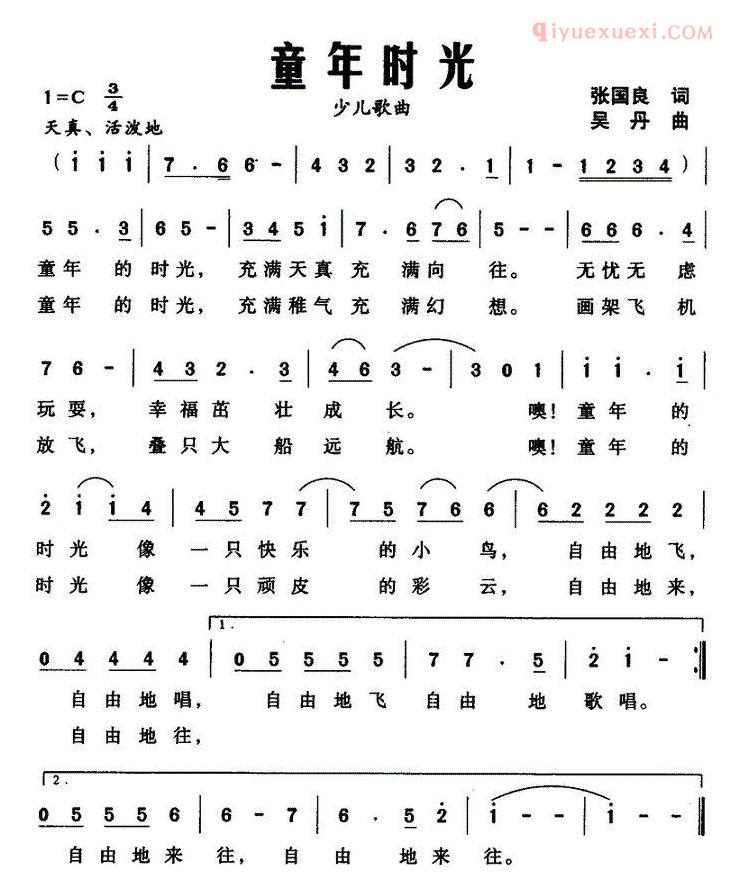 qiyuexuexi.COM
童年时光
1=C 3/4
少儿歌曲
张国良 词
天真、活泼地
吴丹 曲
( i i i | 7 . 6 6 - | 4 3 2 | 3 2 . 1 | 1 - 1 2 3 4 ) |
5 5 . 3 | 6 5 - | 3 4 5 i | 7 . 6 7 6 | 5 - - | 6 6 6 . 4 |
童年 的 时光, 充满天真 充 满向 往。 无忧无 虑
童年 的 时光, 充满稚气 充 满幻 想。 画架飞 机
7 6 - | 4 3 2 . 3 | 4 6 3 - | 3 0 1 | i i . i |
玩耍, 幸福茁 壮 成 长。 噢! 童年 的
放飞, 叠只大 船 远 航。 噢! 童年 的
2 i i 4 | 4 5 7 7 | 7 5 7 6 6 | 6 2 2 2 2 |
时光 像 一只快乐 的小 鸟, 自由地飞,
时光 像 一只顽皮 的彩 云, 自由地来,
1.
0 4 4 4 4 | 0 5 5 5 5 | 7 7 . 5 | 2 i - :||
自由地唱, 自由地飞 自由 地 歌唱。
自由地往,
2.
0 5 5 5 6 | 6 - 7 | 6 . 5 2 | i - - | i - - ||
自由地来 往, 自 由 地来 往。